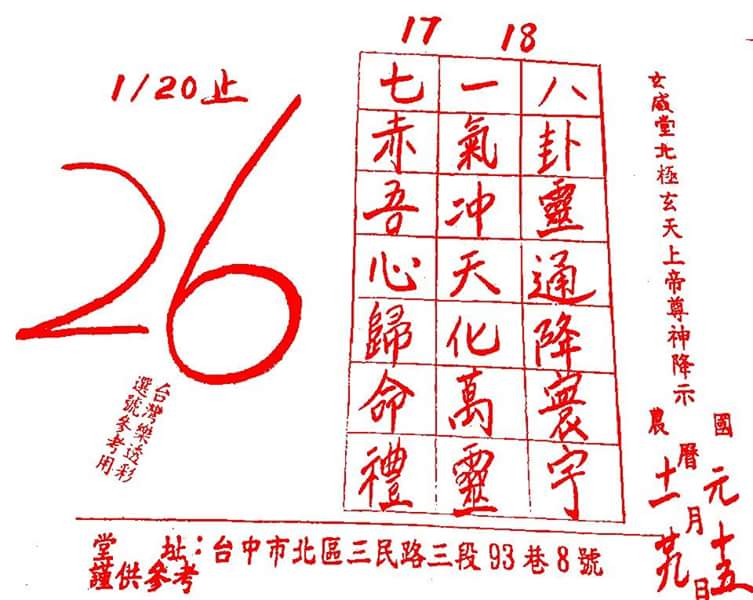 17 18
1/20止
26
台灣樂透彩
選號參考用
八卦靈通降寰宇
一氣冲天化萬靈
七赤吾心歸命禮
玄威堂北極玄天上帝尊神降示
國曆元月十五日
農曆十一月廿九日
堂 址：台中市北區三民路三段93巷8號
謹供參考